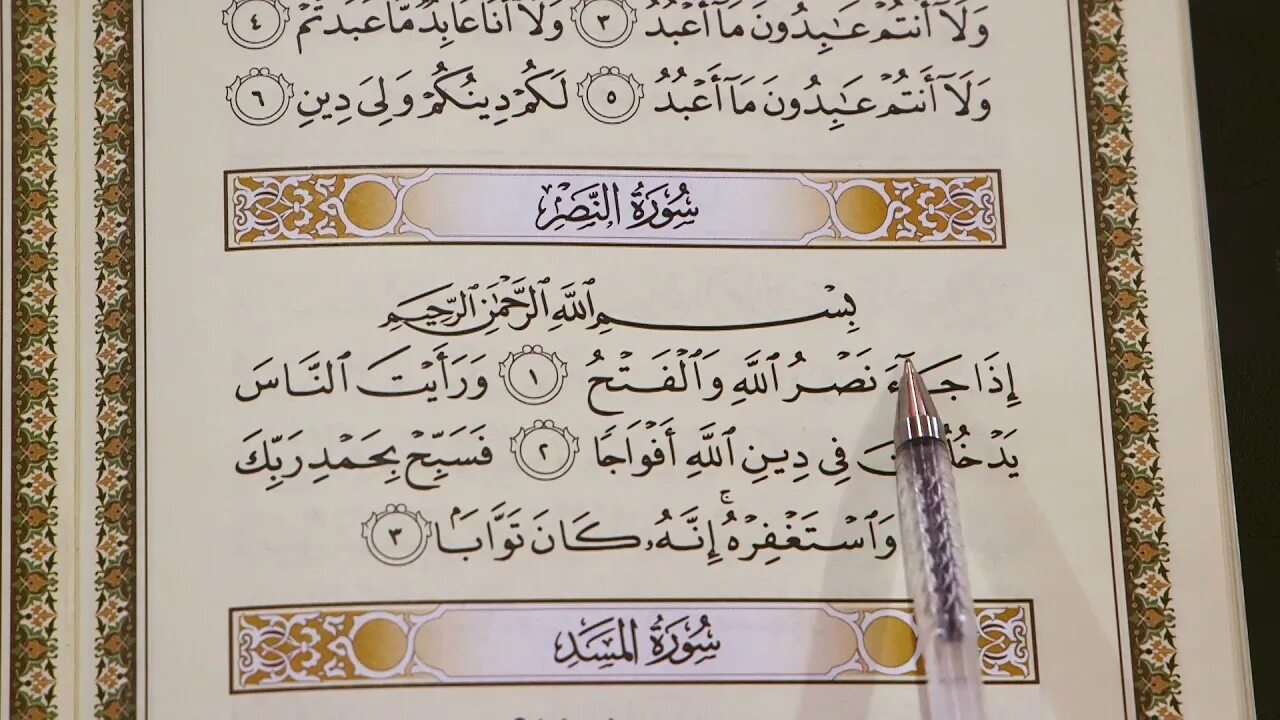 وَلَآ أَنتُمْ عَٰبِدُونَ مَآ أَعْبُدُ ٣ وَلَآ أَنَا۠ عَابِدٌ مَّا عَبَدتُّمْ ٤
وَلَآ أَنتُمْ عَٰبِدُونَ مَآ أَعْبُدُ ٥ لَكُمْ دِينُكُمْ وَلِىَ دِينِ ٦
سُورَةُ النَّصْرِ
بِسْمِ ٱللَّهِ ٱلرَّحْمَٰنِ ٱلرَّحِيمِ
إِذَا جَآءَ نَصْرُ ٱللَّهِ وَٱلْفَتْحُ ١ وَرَأَيْتَ ٱلنَّاسَ
يَدْخُلُونَ فِى دِينِ ٱللَّهِ أَفْوَاجًا ٢ فَسَبِّحْ بِحَمْدِ رَبِّكَ
وَٱسْتَغْفِرْهُ ۚ إِنَّهُۥ كَانَ تَوَّابَۢا ٣
سُورَةُ المَسَدِ